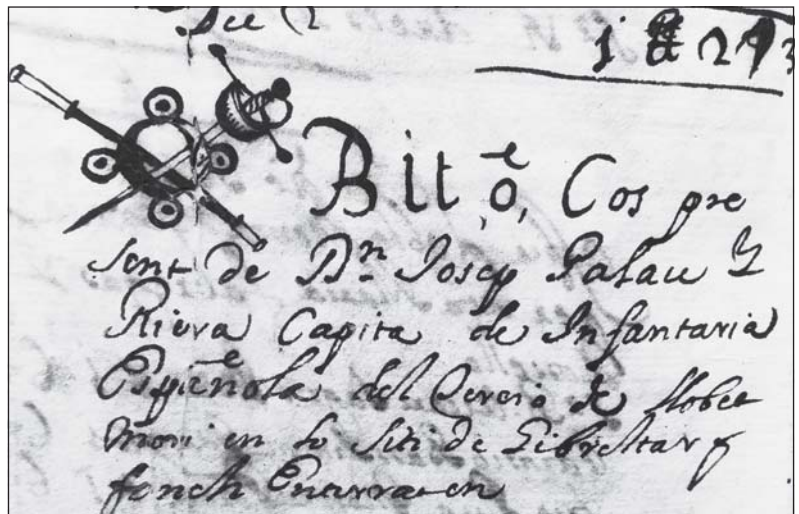 Cos pre
sent de Dn Josep Palau y
Riera Capita de Infantaria
Española del Tercio de llobet
mori en lo siti de Gibreltar y
fonch Enterrat en